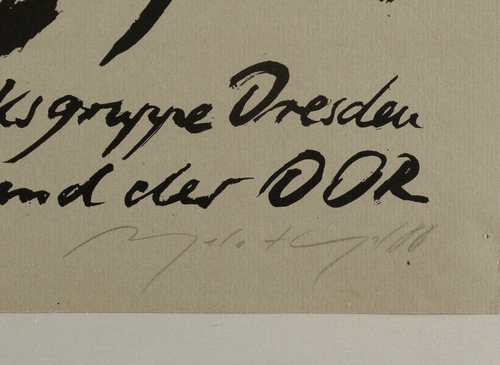 ksgruppe Dresden
and der DDR